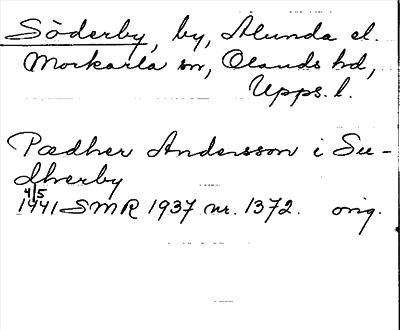 Söderby, by, Alunda el.
Morkarla sn, Olands hd,
Upps. l.
Pædher Andersson i Su-
dherby
4/5
1441 SMR 1937 nr. 1372. orig.